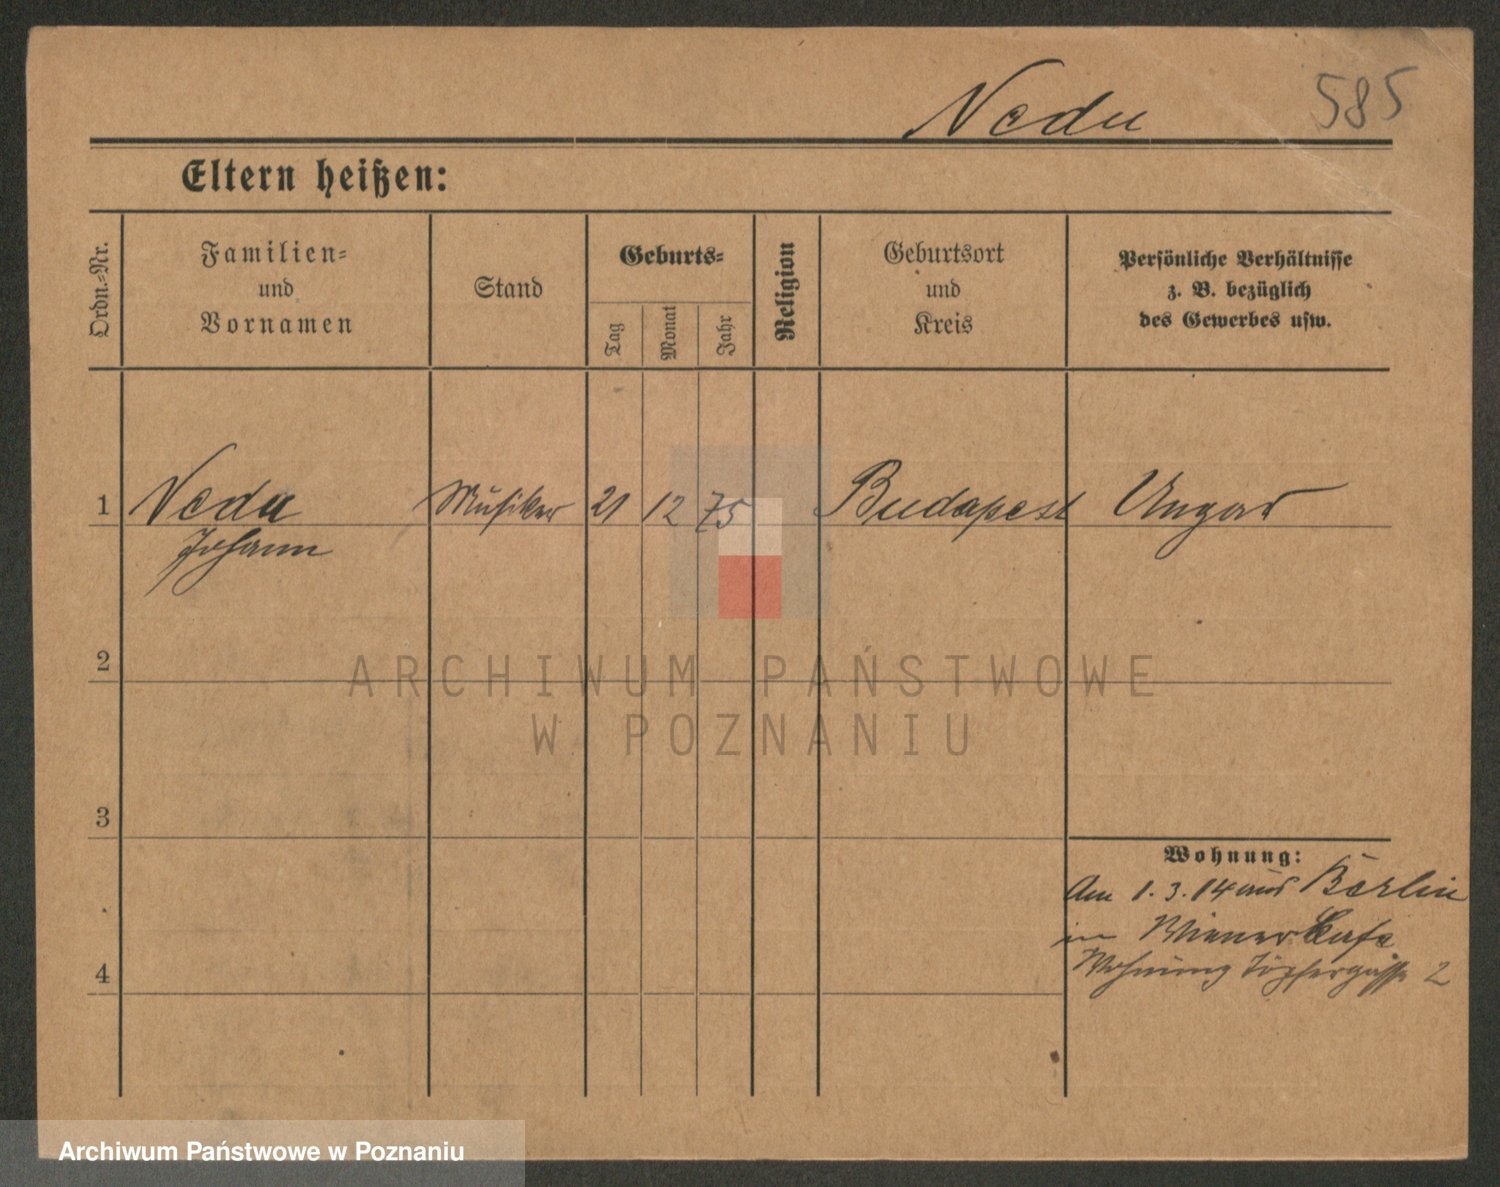 Nedu
585
Eltern heißen:
Ordn.-Nr.
Familien-
und
Vornamen
Stand
Geburts-
Tag
Monat
Jahr
Religion
Geburtsort
und
Kreis
Persönliche Verhältnisse
z. B. bezüglich
des Gewerbes usw.
1 Nedu Musiker 21 12 75 Budapest Ungar
Johann
2
ARCHIWUM PAŃSTWOWE
W POZNANIU
3
Wohnung:
Am 1. 3. 14 aus Berlin
in Wiener Cafe
4
Wohnung Töpfergasse 2
Archiwum Państwowe w Poznaniu